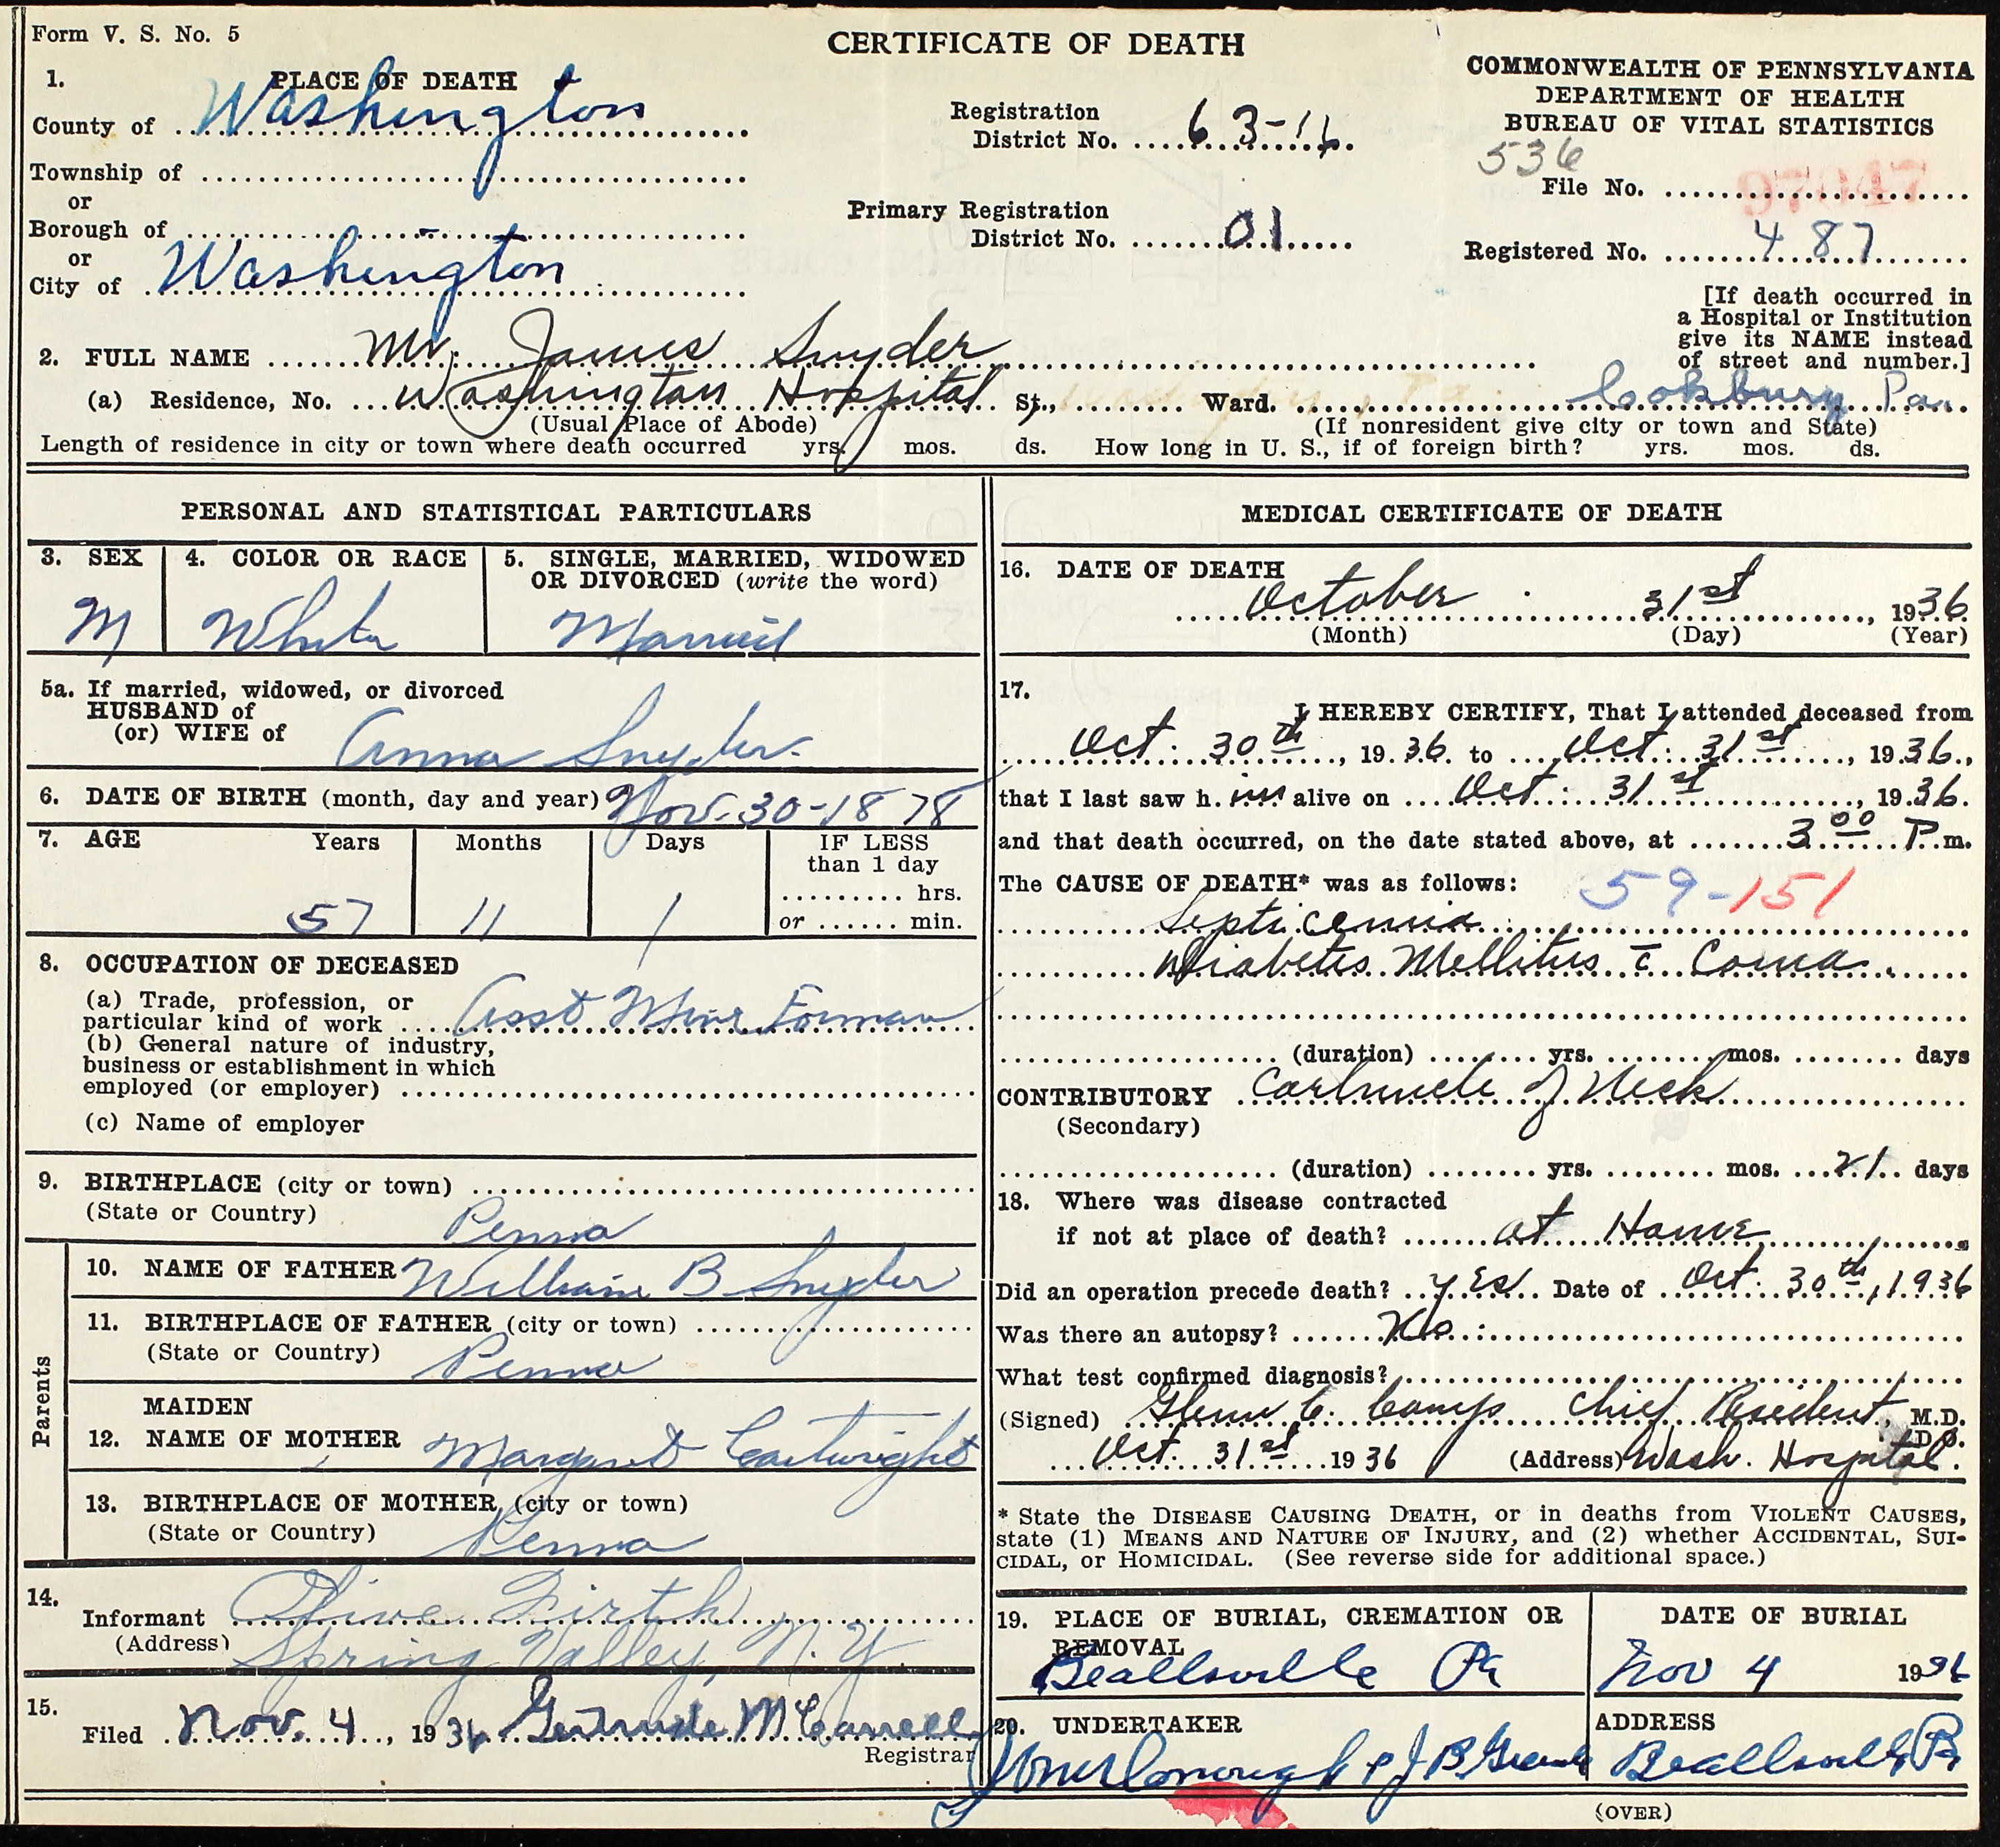 Form V. S. No. 5
CERTIFICATE OF DEATH
COMMONWEALTH OF PENNSYLVANIA
DEPARTMENT OF HEALTH
BUREAU OF VITAL STATISTICS
1. PLACE OF DEATH
County of Washington
Township of
or
Borough of -
or
City of Washington
Registration
District No. 63-16
Primary Registration
District No. 01
536
File No.
Registered No. 487
[If death occurred in
a Hospital or Institution
give its NAME instead
of street and number.]
2. FULL NAME Mr. James Snyder
(a) Residence, No. Washington Hospital St., Ward. Cokburg Pa.
(Usual Place of Abode) (If nonresident give city or town and State)
Length of residence in city or town where death occurred yrs. mos. ds. How long in U. S., if of foreign birth? yrs. mos. ds.
PERSONAL AND STATISTICAL PARTICULARS
3. SEX
M
4. COLOR OR RACE
White
5. SINGLE, MARRIED, WIDOWED
OR DIVORCED (write the word)
Married
5a. If married, widowed, or divorced
HUSBAND of
(or) WIFE of
Anna Snyder
6. DATE OF BIRTH (month, day and year) Nov. 30-1878
7. AGE Years Months Days IF LESS
than 1 day
hrs.
57 11 1 or min.
8. OCCUPATION OF DECEASED
(a) Trade, profession, or
particular kind of work Asst Mine Forman
(b) General nature of industry,
business or establishment in which
employed (or employer)
(c) Name of employer
9. BIRTHPLACE (city or town)
(State or Country) Penna
Parents
10. NAME OF FATHER William B Snyder
11. BIRTHPLACE OF FATHER (city or town)
(State or Country) Penna
MAIDEN
12. NAME OF MOTHER Margaret Cartwright
13. BIRTHPLACE OF MOTHER (city or town)
(State or Country) Penna
14.
Informant Olive Firth
(Address) Spring Valley, N. Y.
15.
Filed Nov. 4, 1936 Gertrude McCarrell
Registrar
MEDICAL CERTIFICATE OF DEATH
16. DATE OF DEATH
October 31st, 1936
(Month) (Day) (Year)
17.
I HEREBY CERTIFY, That I attended deceased from
Oct. 30th, 1936 to Oct. 31st, 1936,
that I last saw h im alive on Oct. 31st, 1936.
and that death occurred, on the date stated above, at 3 00 P. m.
The CAUSE OF DEATH* was as follows: 59-151
Septicemia
Diabetes Mellitus c̄ Coma
(duration) yrs. mos. days
CONTRIBUTORY Carbuncle of Neck
(Secondary)
(duration) yrs. mos. 21 days
18. Where was disease contracted
if not at place of death? at Home
Did an operation precede death? yes Date of Oct. 30th, 1936
Was there an autopsy? No
What test confirmed diagnosis?
(Signed) Glenn C. Camp Chief Resident, M.D.
D.O.
Oct. 31st 1936 (Address) Wash. Hospital.
* State the DISEASE CAUSING DEATH, or in deaths from VIOLENT CAUSES,
state (1) MEANS AND NATURE OF INJURY, and (2) whether ACCIDENTAL, SUI-
CIDAL, or HOMICIDAL. (See reverse side for additional space.)
19. PLACE OF BURIAL, CREMATION OR
REMOVAL
Beallsville Pa
DATE OF BURIAL
Nov 4 1936
20. UNDERTAKER
J B
ADDRESS
Beallsville Pa
(OVER)